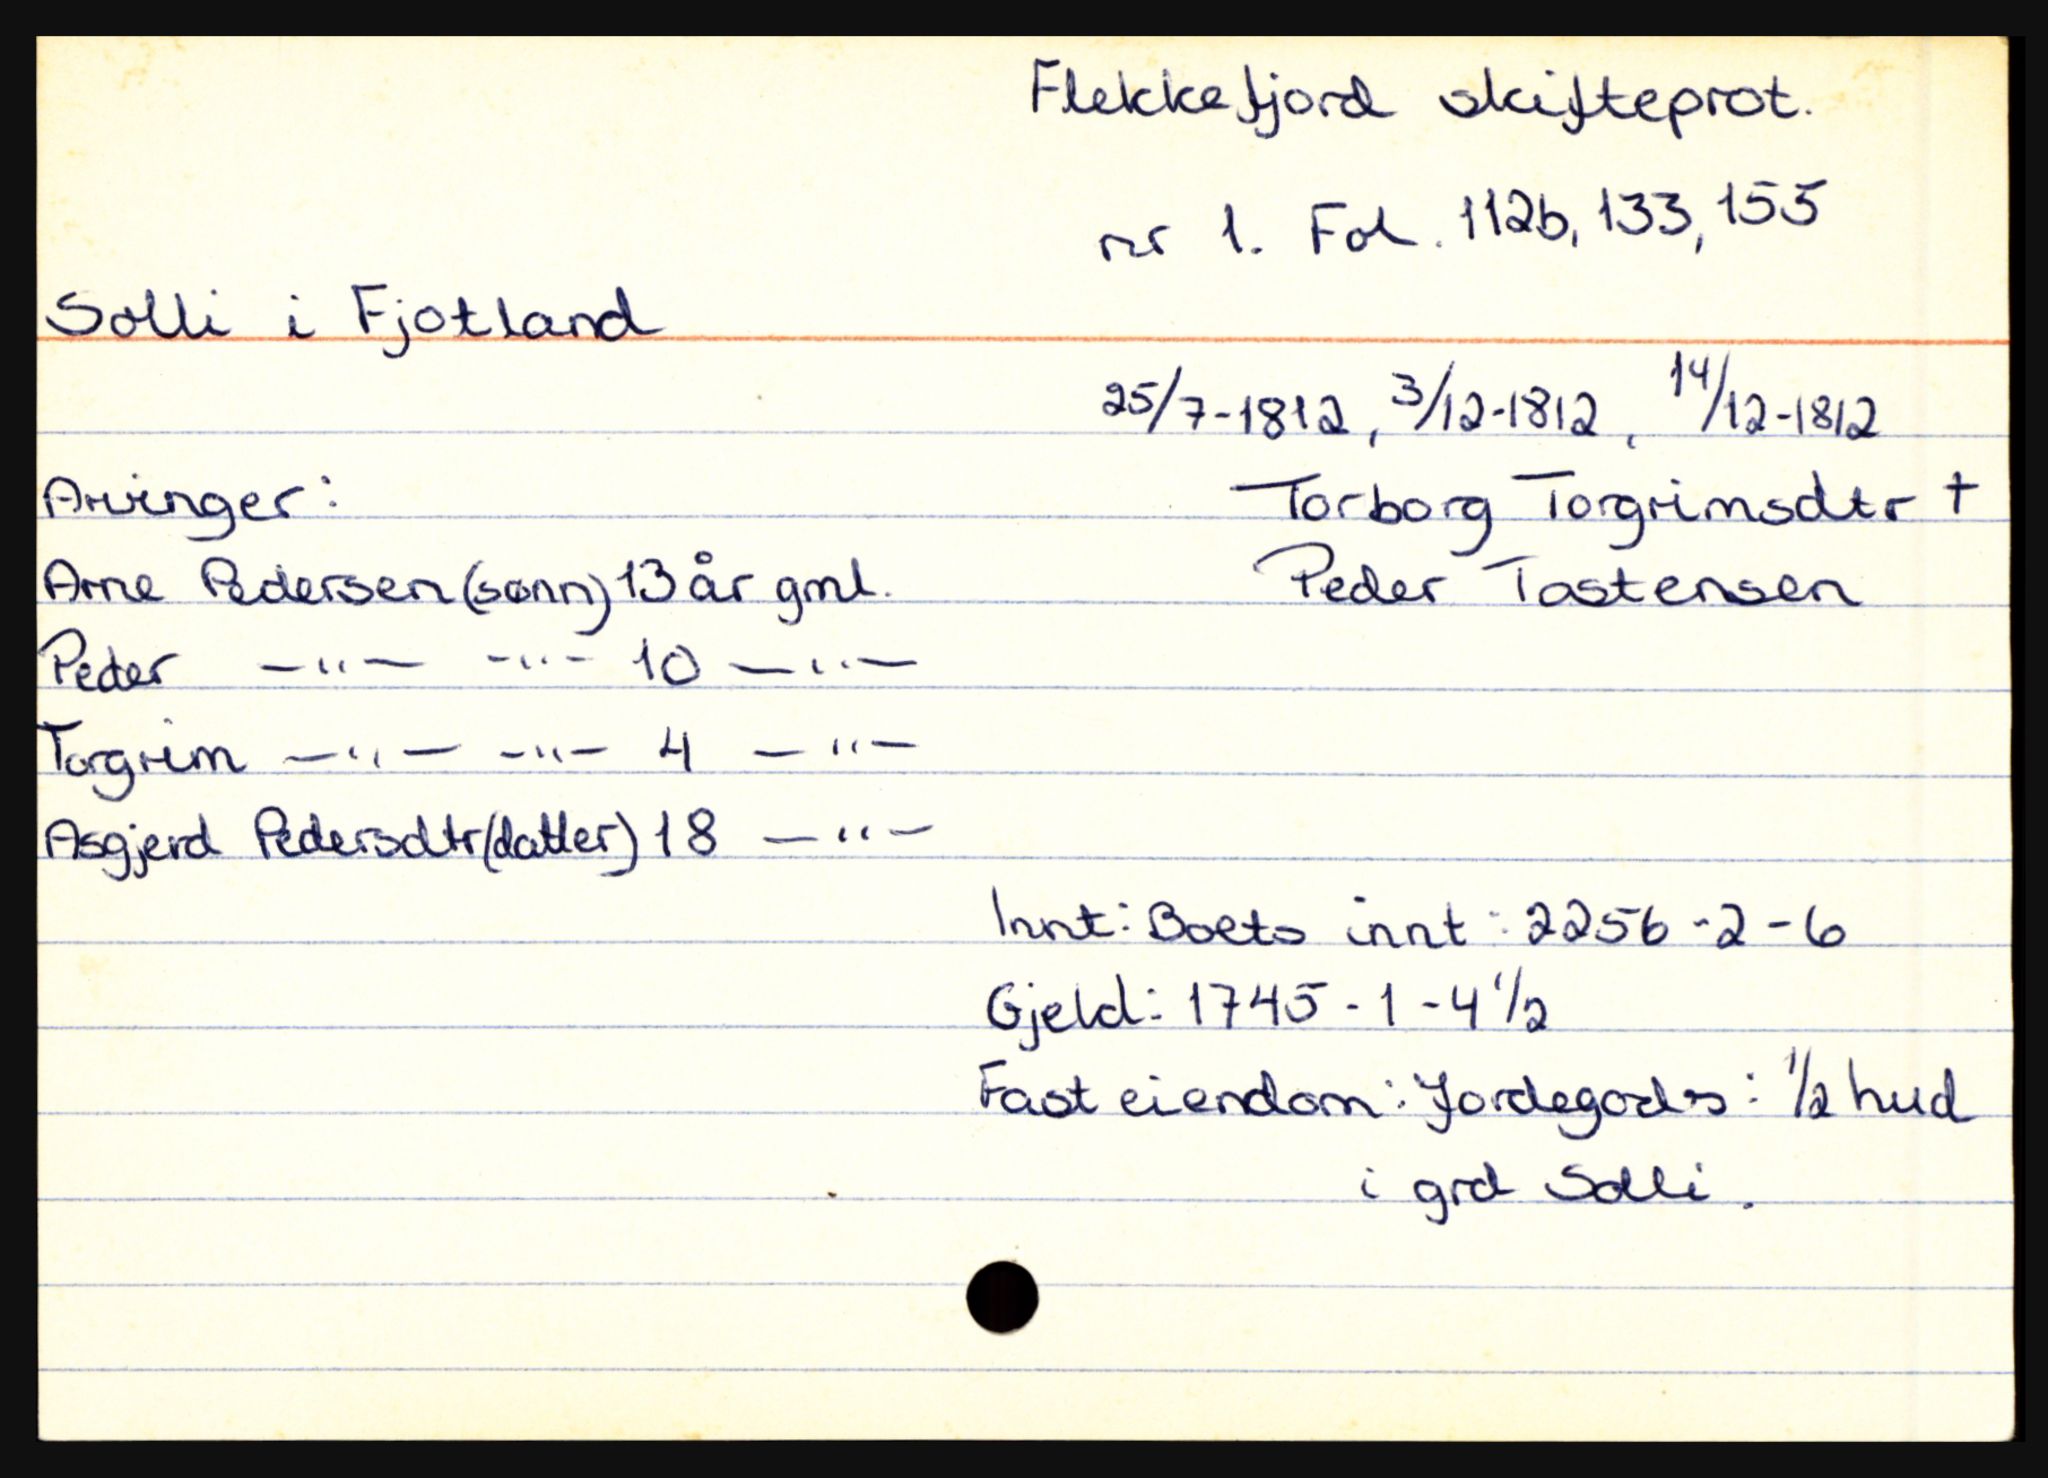 Flekkefjord skifteprot.
nr 1. Fol. 112b, 133, 155
Solli i Fjotland
25/7-1812, 3/12-1812, 14/12-1812
Arvinger: Torborg Torgrimsdtr †
Arne Pedersen (sønn) 13 år gml. Peder Tostensen
Peder —"— -"- 10 —"—
Torgrim —"— -"- 4 —"—
Asgjerd Pedersdtr (datter) 18 —"—
Innt: Boets innt: 2256-2-6
Gjeld: 1745-1-4 1/2
Fast eiendom: Jordegods: 1/2 hud
i grd Solli.